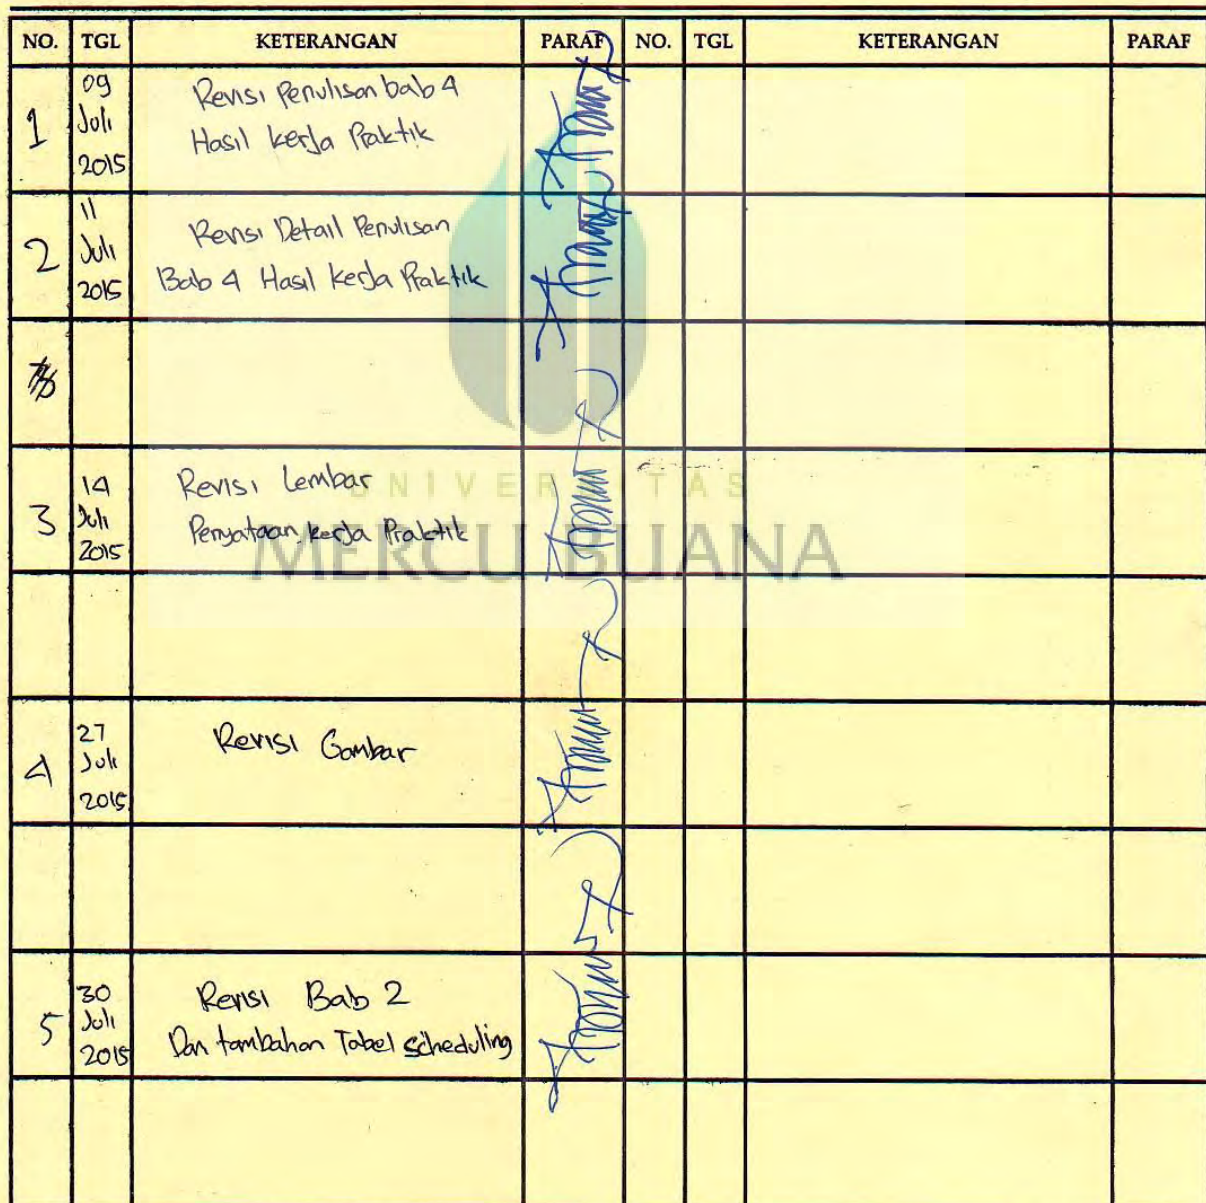 NO. TGL KETERANGAN PARAF NO. TGL KETERANGAN PARAF
1
09
Juli
2015
Revisi Penulisan bab 4
Hasil kerja Praktik
2
11
Juli
2015
Revisi Detail Penulisan
Bab 4 Hasil kerja Praktik
3
14
Juli
2015
Revisi Lembar
Penyataan kerja Praktik
UNIVERSITAS
MERCU BUANA
4
27
Juli
2015
Revisi Gambar
5
30
Juli
2015
Revisi Bab 2
Dan tambahan Tabel scheduling